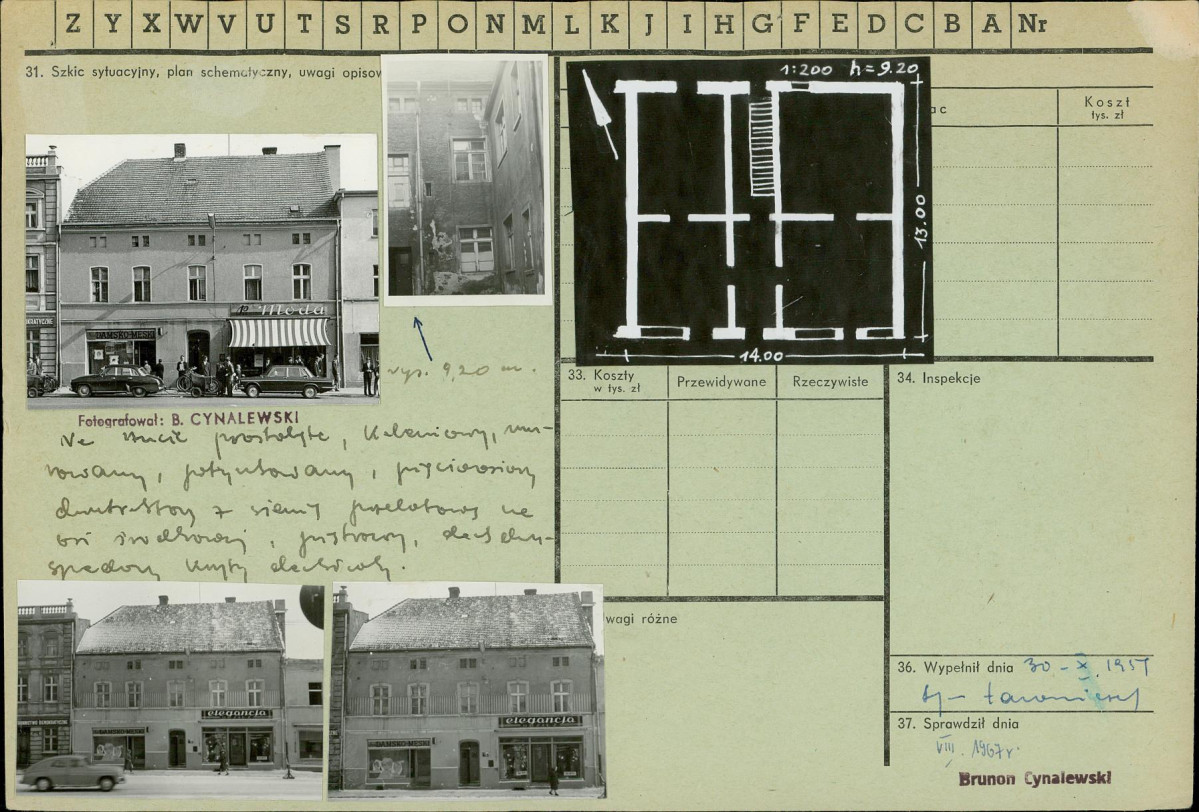 Z Y X W V U T S R P O N M L K J I H G F E D C B A Nr
31. Szkic sytuacyjny, plan schematyczny, uwagi opisow
1:200 h=9.20
13.00
14.00
ac
Koszt
tys. zł
Moda
DAMSKO-MĘSKI
wys. 9,20 m.
Fotografował: B. CYNALEWSKI
Na rzucie prostokąta, kalenicowy, mu-
rowany, potynkowany, pięcioosiowy
dwutraktowy z sienią przelotową na
osi środkowej, piętrowy, dach dwu-
spadowy kryty dachówką.
elegancja
DAMSKO-MĘSKI
elegancja
DAMSKO-MĘSKI
33. Koszty
w tys. zł
Przewidywane
Rzeczywiste
34. Inspekcje
wagi różne
36. Wypełnił dnia 30-X.195
37. Sprawdził dnia
VIII. 1967r.
Brunon Cynalewski